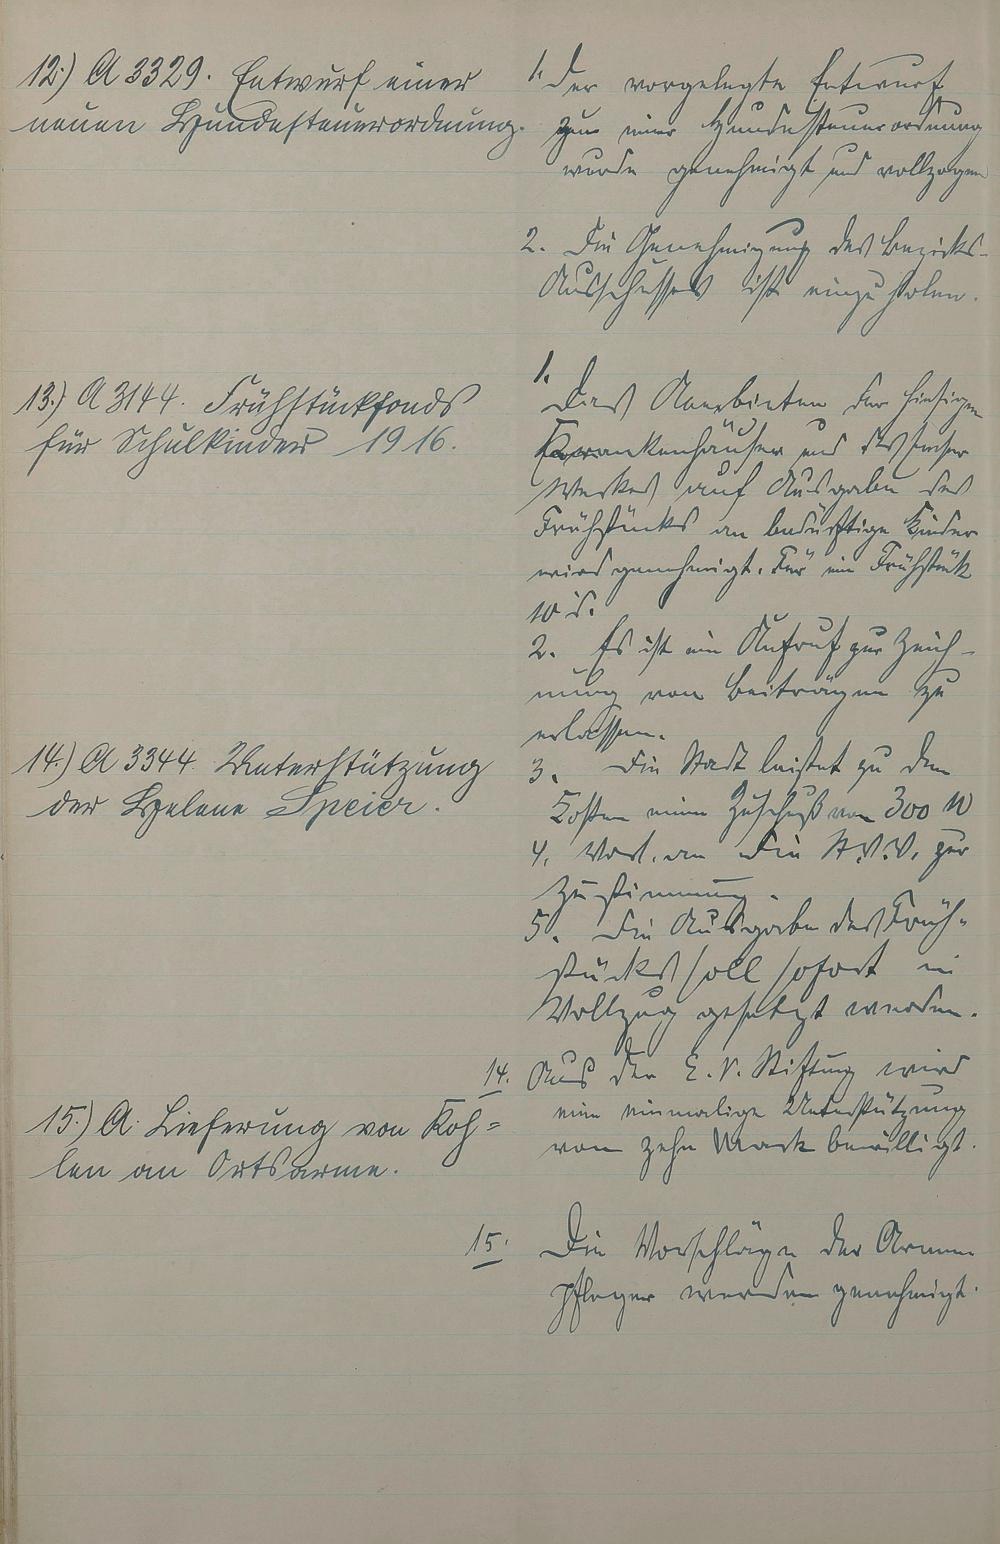 12.) A 3329. Entwurf einer
neuen Hundesteuerordnung.
1. Der vorgelegte Entwurf
zur einer Hundesteuerordnung
wurde genehmigt und vollzogen
2. Die Genehmigung des Bezirks-
Ausschusses ist einzuholen.
13.) A 3144. Frühstückfonds
für Schulkinder 1916.
1.
Das Anerbieten der hiesigen
Krankenhäuser und des
Werkes auf Ausgabe des
Frühstücks an bedürftige Kinder
wird genehmigt. Für ein Frühstück
10 d.
2. Es ist ein Aufruf zur Zeich-
nung von Beiträgen zu
erlassen.
3. Die Stadt leistet zu den
Kosten einen Zuschuß von 300 M
4. Vorl. an die St.V.V. zur
Zustimmung.
5. Die Ausgabe des Früh-
stücks soll sofort in
Vollzug gesetzt werden.
14.) A 3344. Unterstützung
der Helene Speier.
14. Aus der E. V. Stiftung wird
eine einmalige Unterstützung
von zehn Mark bewilligt.
15.) A. Lieferung von Koh=
len an Ortsarme.
15. Die Vorschläge der Armen
pfleger werden genehmigt.